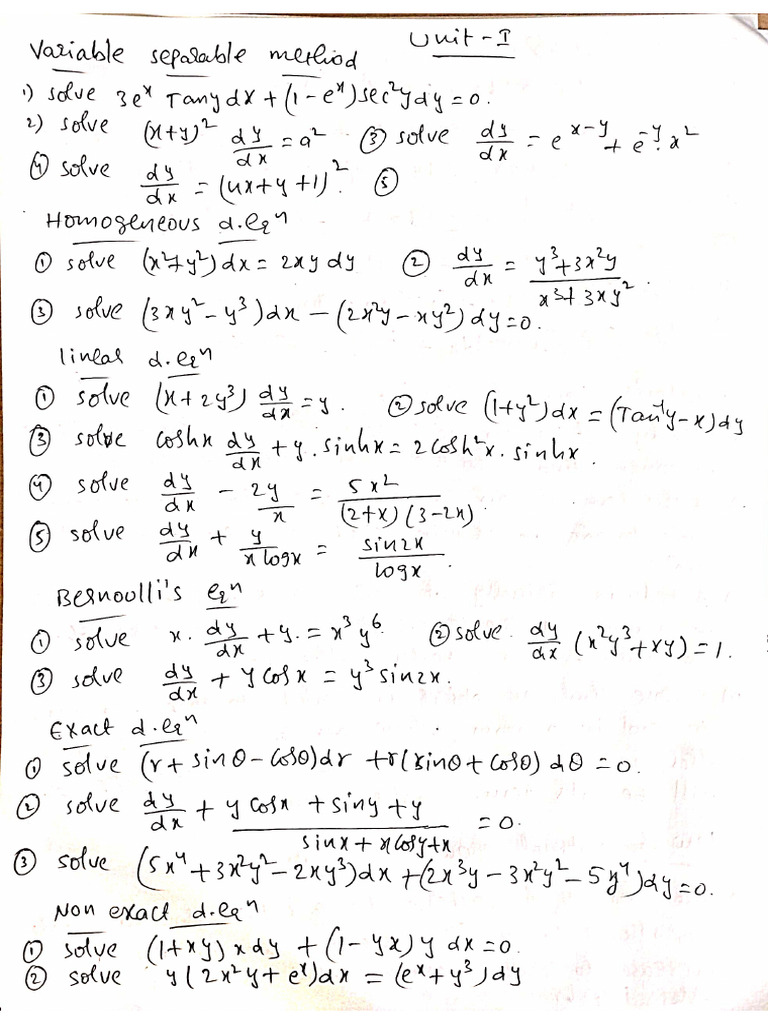 Unit-I
Variable separable method
1) solve 3e^x Tany dx + (1-e^x) sec²y dy = 0.
2) solve (x+y)² dy/dx = a² ③ solve dy/dx = e^(x-y) + e^(-y). x²
④ solve dy/dx = (4x+y+1)². ⑤
Homogeneous d.eqⁿ
① solve (x²+y²) dx = 2xy dy ② dy/dx = (y³+3x²y)/(x³+3xy²).
③ solve (3xy²-y³) dx - (2x²y-xy²) dy = 0.
linear d.eqⁿ
① solve (x+2y³) dy/dx = y. ② solve (1+y²) dx = (Tan⁻¹y-x) dy
③ solve coshx dy/dx + y. sinhx = 2cosh²x. sinhx.
④ solve dy/dx - 2y/x = 5x²/((2+x)(3-2x))
⑤ solve dy/dx + y/(x logx) = sin2x/logx.
Bernoulli's eqⁿ
① solve x. dy/dx + y. = x³y⁶. ② solve. dy/dx (x²y³+xy) = 1.
③ solve dy/dx + y cosx = y³ sin2x.
Exact d.eqⁿ
① solve (r + sinθ - cosθ) dr + r(sinθ + cosθ) dθ = 0.
② solve dy/dx + (y cosx + siny + y)/(sinx + x cosy + x) = 0.
③ solve (5x⁴ + 3x²y² - 2xy³) dx + (2x³y - 3x²y² - 5y⁴) dy = 0.
Non exact d.eqⁿ
① solve (1+xy) x dy + (1-yx) y dx = 0.
② solve y(2x²y + e^x) dx = (e^x + y³) dy